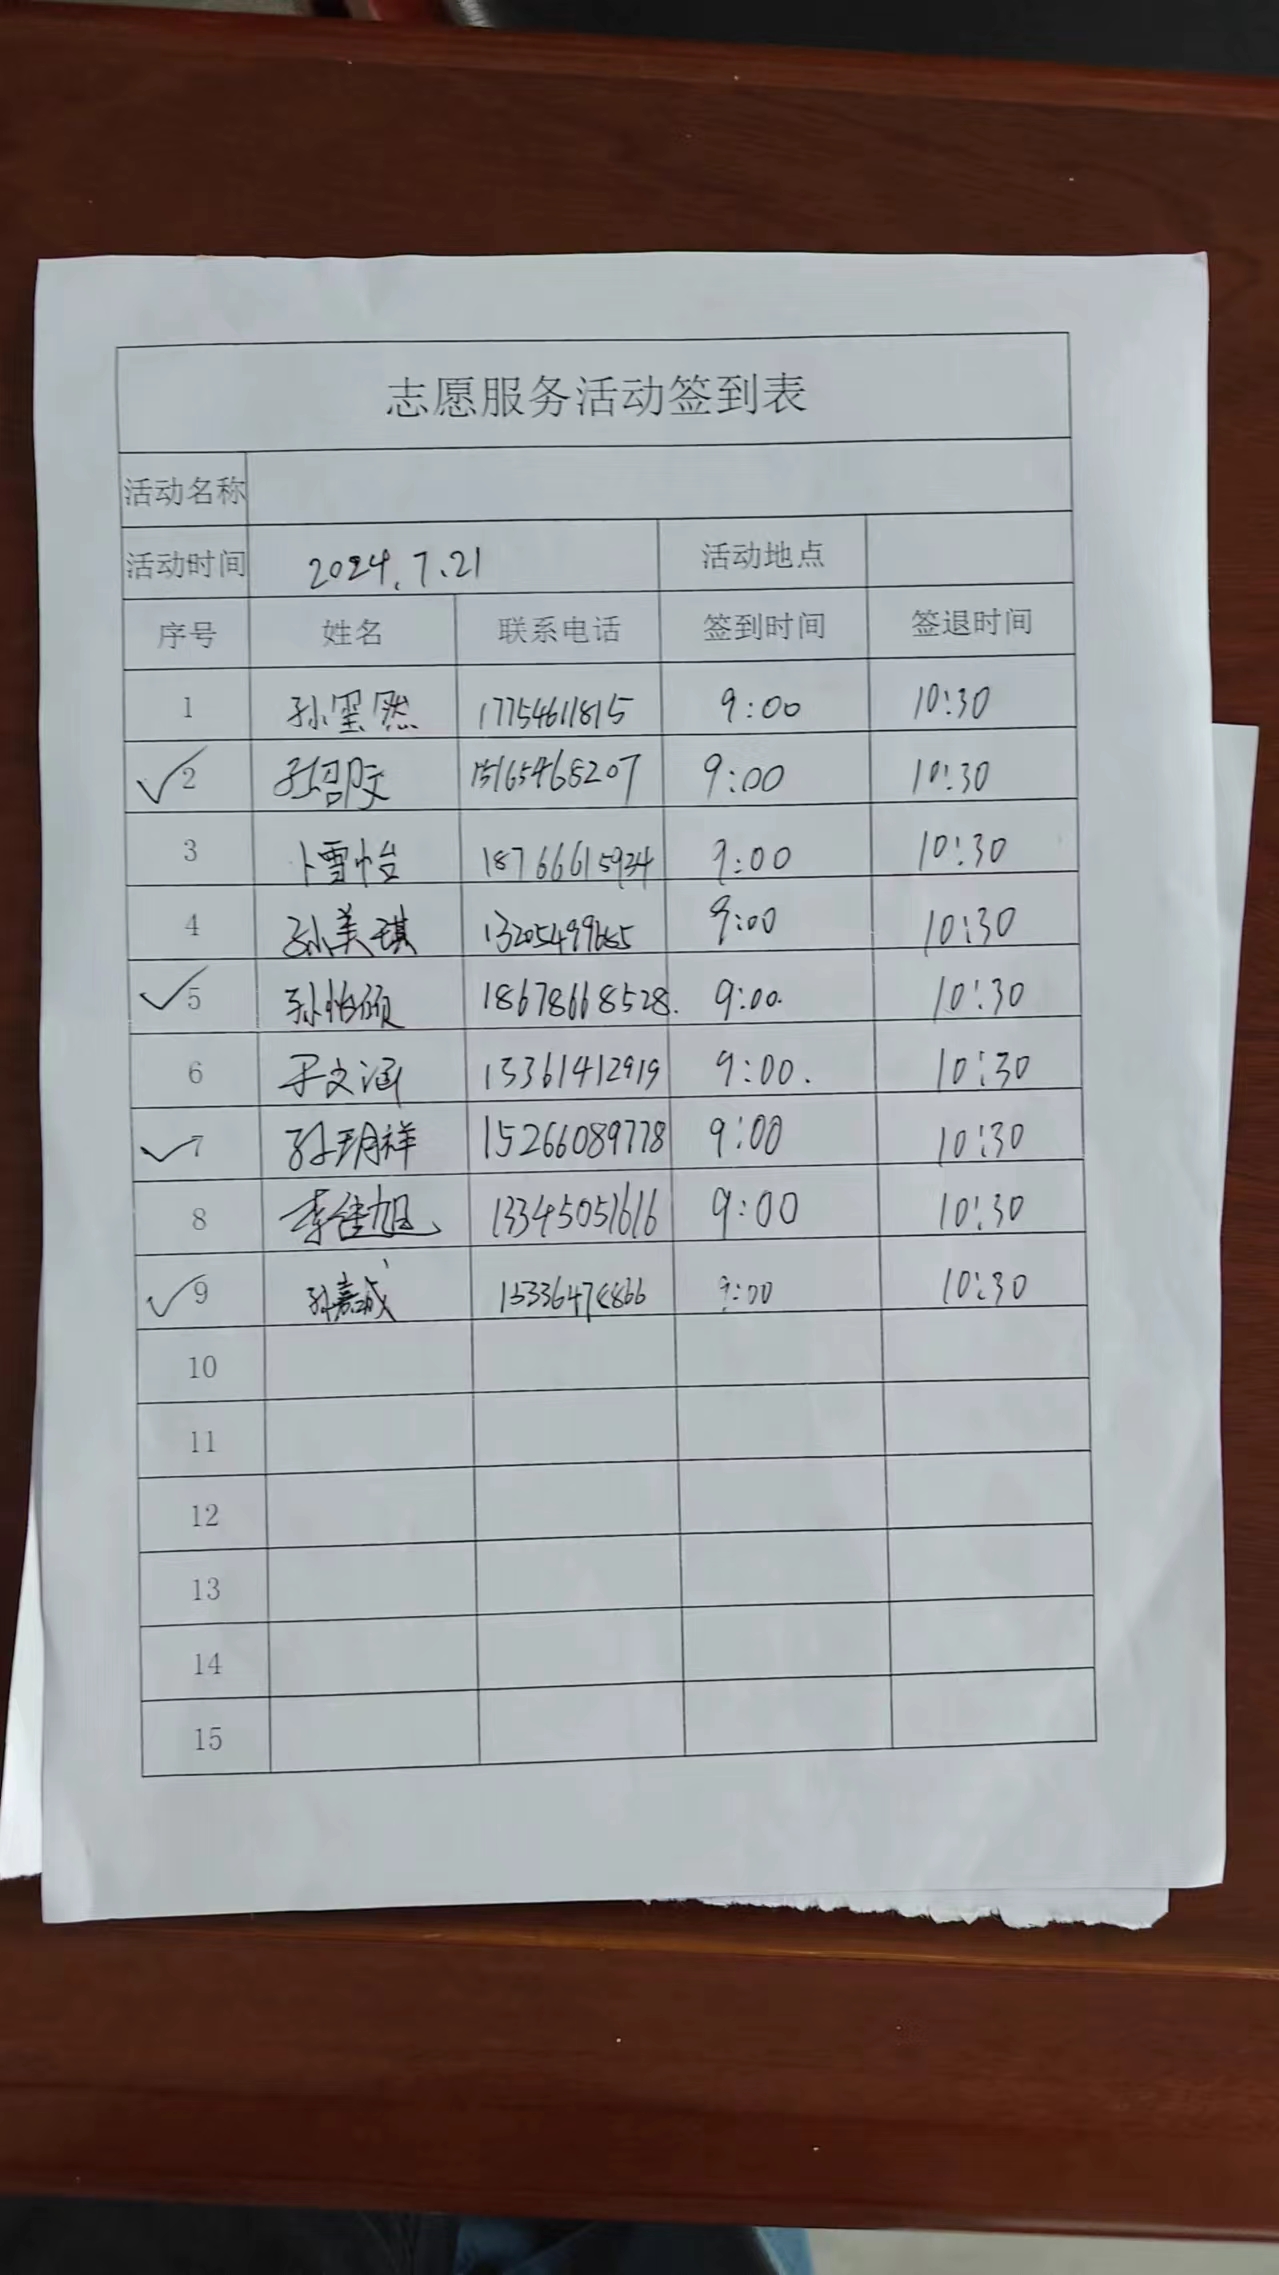 志愿服务活动签到表
活动名称
活动时间 2024.7.21 活动地点
序号 姓名 联系电话 签到时间 签退时间
1 孙玺然 17754611815 9:00 10:30
✓2 15165468207 9:00 10:30
3 卜雪怡 18766615934 9:00 10:30
4 孙美琪 9:00 10:30
✓5 孙怡颀 18678668528. 9:00. 10:30
6 于文涵 13361412919 9:00. 10:30
✓7 孙玥祥 15266089778 9:00 10:30
8 李佳旭 13345051616 9:00 10:30
✓9 孙嘉诚 15336478866 9:00 10:30
10
11
12
13
14
15